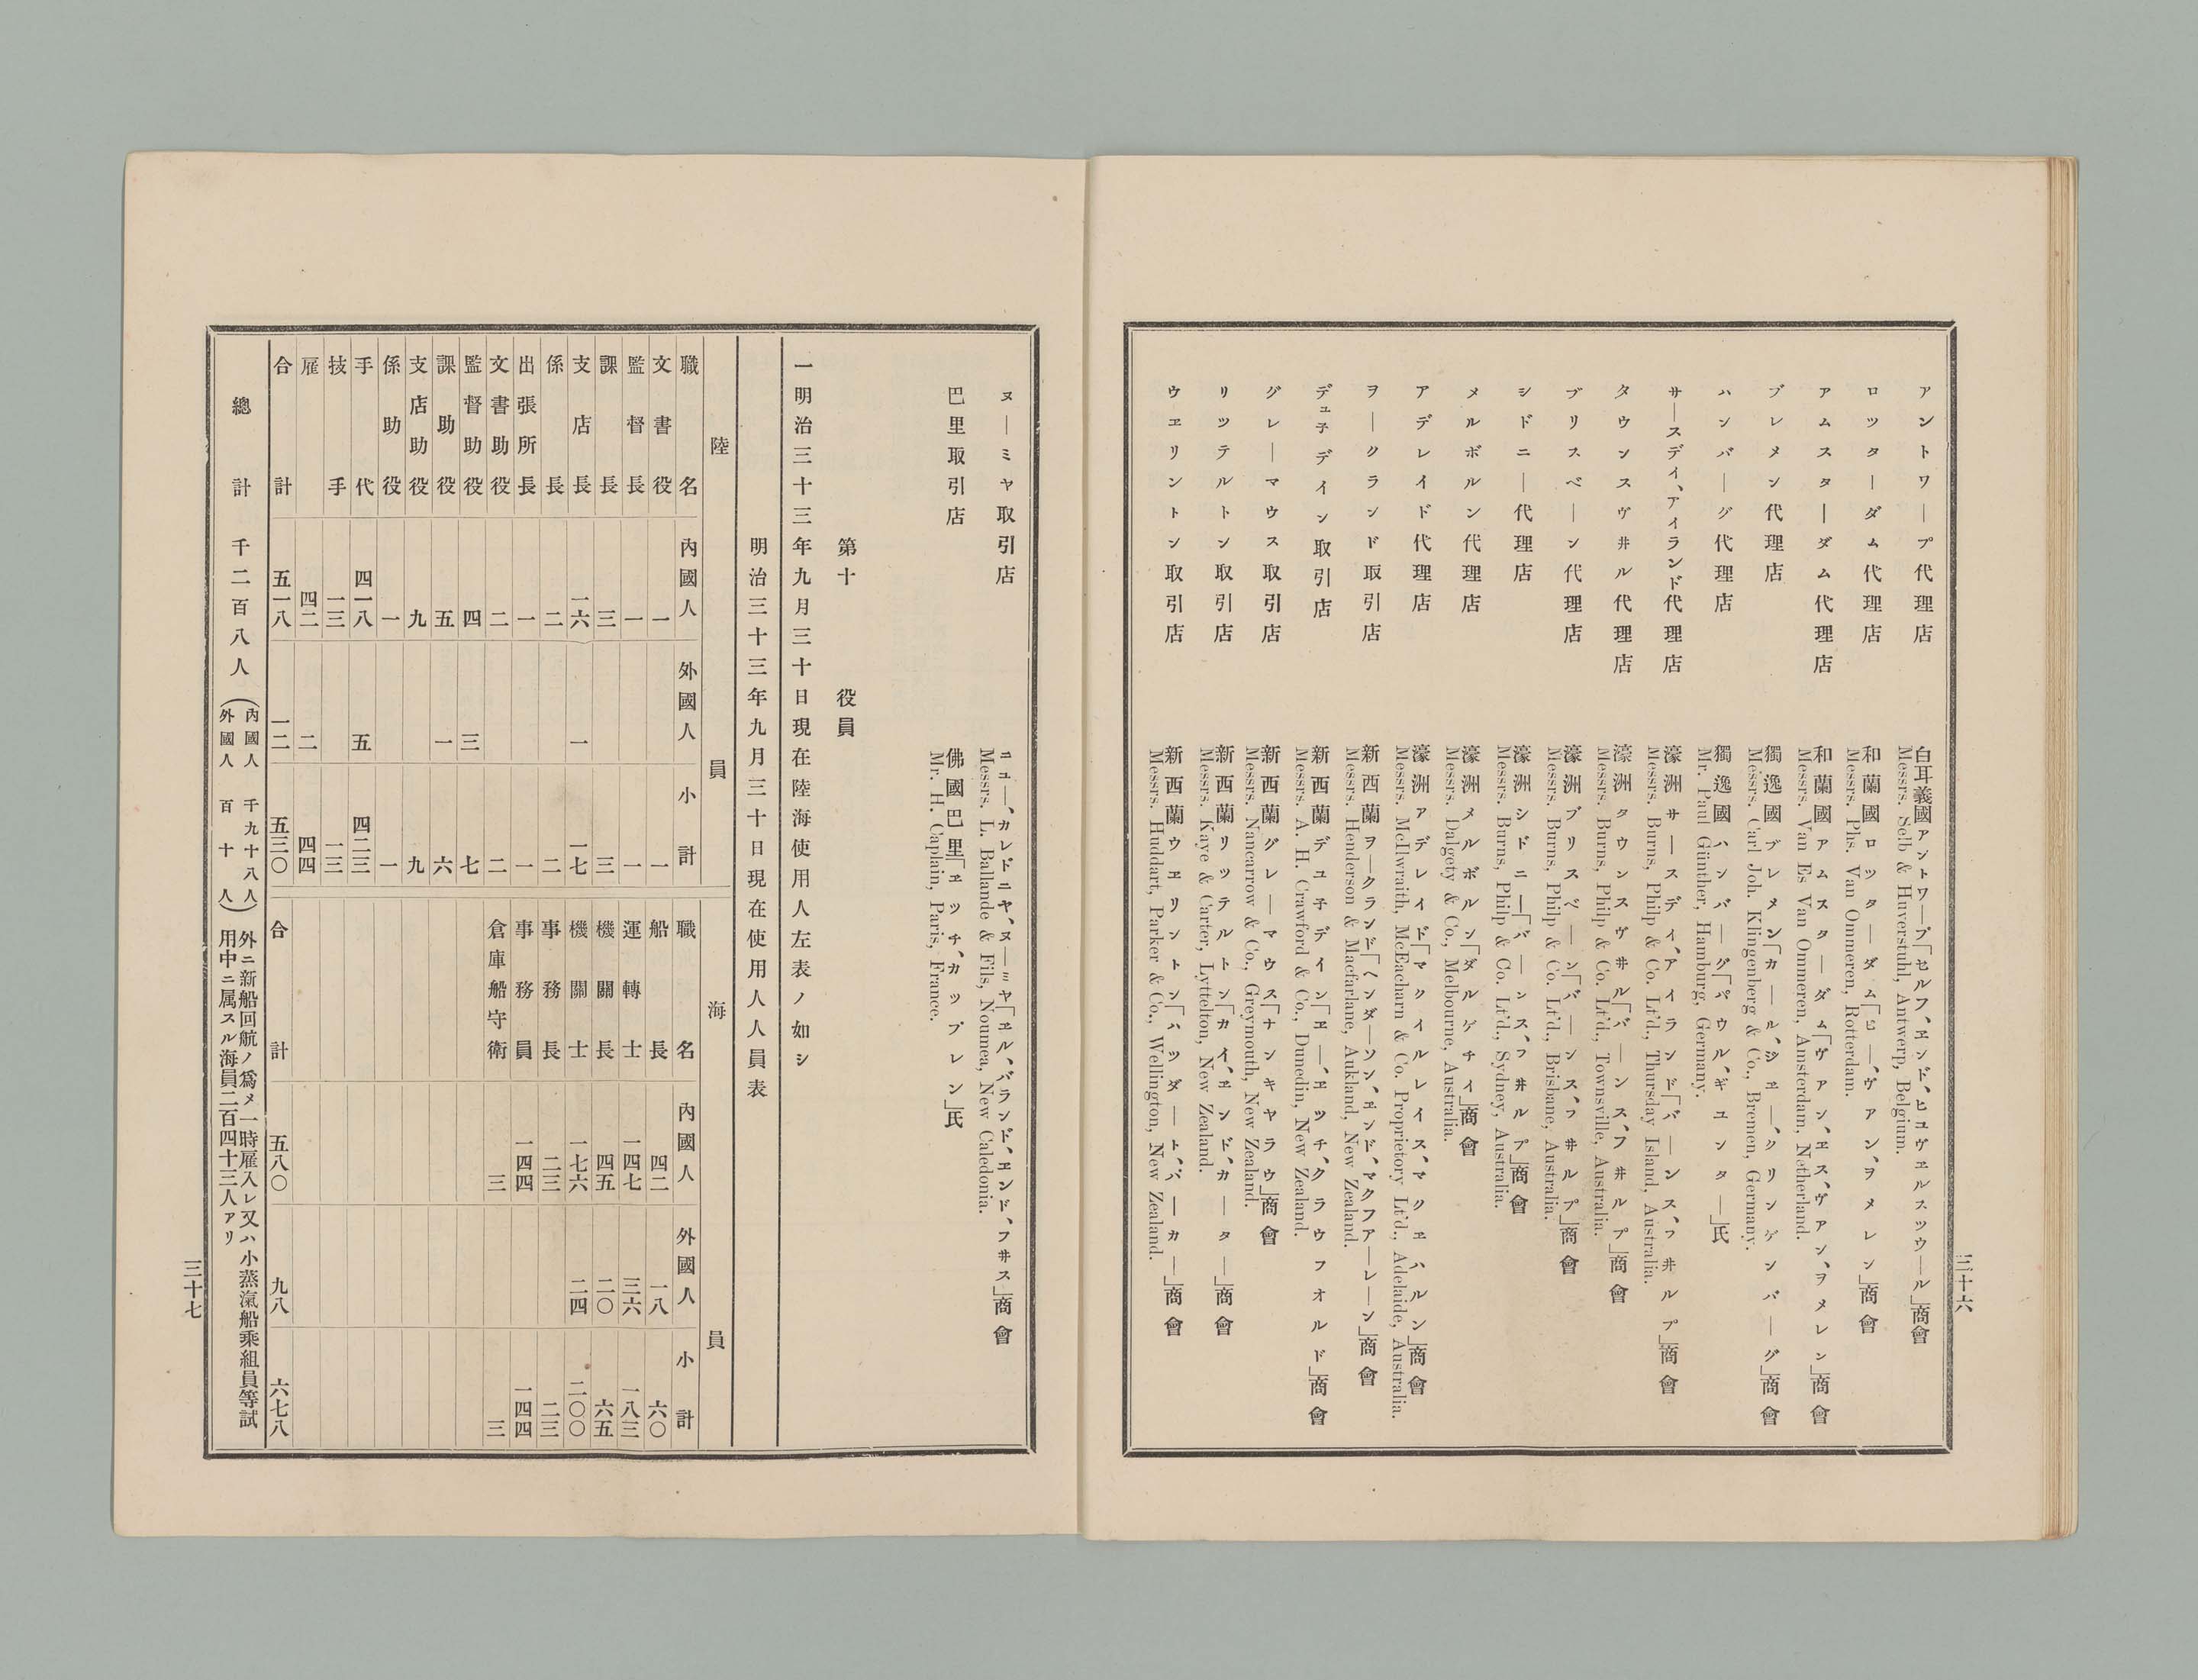 三十六
アントワープ代理店　白耳義國アントワープ「セルフ、ヱンド、ヒユヴヱルスツウール」商會
Messrs. Selb & Huverstuhl, Antwerp, Belgium.
ロツターダム代理店　和蘭國ロツターダム「ピー、ヴアン、ヲメレン」商會
Messrs. Phs. Van Ommeren, Rotterdam.
アムスターダム代理店　和蘭國アムスターダム「ヴアン、ヱス、ヴアン、ヲメレン」商會
Messrs. Van Es Van Ommeren, Amsterdam, Netherland.
ブレメン代理店　獨逸國ブレメン「カール、ジヱー、クリンゲンバーグ」商會
Messrs. Carl Joh. Klingenberg & Co., Bremen, Germany.
ハンバーグ代理店　獨逸國ハンバーグ「パウル、ギユンター」氏
Mr. Paul Günther, Hamburg, Germany.
サースデイ、アイランド代理店　濠洲サースデイ、アイランド「バーンス、フ井ルプ」商會
Messrs. Burns, Philp & Co. Lt'd., Thursday Island, Australia.
タウンスヴ井ル代理店　濠洲タウンスヴ井ル「バーンス、フ井ルプ」商會
Messrs. Burns, Philp & Co. Lt'd., Townsville, Australia.
ブリスベーン代理店　濠洲ブリスベーン「バーンス、フ井ルプ」商會
Messrs. Burns, Philp & Co. Lt'd., Brisbane, Australia.
シドニー代理店　濠洲シドニー「バーンス、フ井ルプ」商會
Messrs. Burns, Philp & Co. Lt'd., Sydney, Australia.
メルボルン代理店　濠洲メルボルン「ダルゲチイ」商會
Messrs. Dalgety & Co., Melbourne, Australia.
アデレイド代理店　濠洲アデレイド「マクイルレイス、マクヱハルン」商會
Messrs. McIlwraith, McEacharn & Co. Proprietory Lt'd., Adelaide, Australia.
ヲークランド取引店　新西蘭ヲークランド「ヘンダーソン、ヱンド、マクフアーレーン」商會
Messrs. Henderson & Macfarlane, Aukland, New Zealand.
デユ子デイン取引店　新西蘭デユ子デイン「ヱー、ヱツチ、クラウフオルド」商會
Messrs. A. H. Crawford & Co., Dunedin, New Zealand.
グレーマウス取引店　新西蘭グレーマウス「ナンキヤラウ」商會
Messrs. Nancarrow & Co., Greymouth, New Zealand.
リツテルトン取引店　新西蘭リツテルトン「カイ、ヱンド、カーター」商會
Messrs. Kaye & Carter, Lyttelton, New Zealand.
ウヱリントン取引店　新西蘭ウヱリントン「ハツダート、パーカー」商會
Messrs. Huddart, Parker & Co., Wellington, New Zealand.
ヌーミヤ取引店　ニユー、カレドニヤ、ヌーミヤ「ヱル、バランド、ヱンド、フ井ス」商會
Messrs. L. Ballande & Fils, Noumea, New Caledonia.
巴里取引店　佛國巴里「ヱツチ、カツプレン」氏
Mr. H. Caplain, Paris, France.
第十　役員
一明治三十三年九月三十日現在陸海使用人左表ノ如シ
明治三十三年九月三十日現在使用人人員表
陸員　海員
職名　內國人　外國人　小計　職名　內國人　外國人　小計
文書役　一　一　船長　四二　一八　六〇
監督長　一　一　運轉士　一四七　三六　一八三
課長　三　三　機關長　四五　二〇　六五
支店長　一六　一　一七　機關士　一七六　二四　二〇〇
係長　二　二　事務長　二三　二三
出張所長　一　一　事務員　一四四　一四四
文書助役　二　二　倉庫船守衛　三　三
監督助役　四　三　七
課助役　五　一　六
支店助役　九　九
係助役　一　一
手代　四一八　五　四二三
技手　一三　一三
雇　四二　二　四四
合計　五一八　一二　五三〇　合計　五八〇　九八　六七八
總計　千二百八人（內國人　千九十八人
外國人　百十人）
外ニ新船回航ノ爲メ一時雇入レ又ハ小蒸滊船乘組員等試
用中ニ属スル海員二百四十三人アリ
三十七